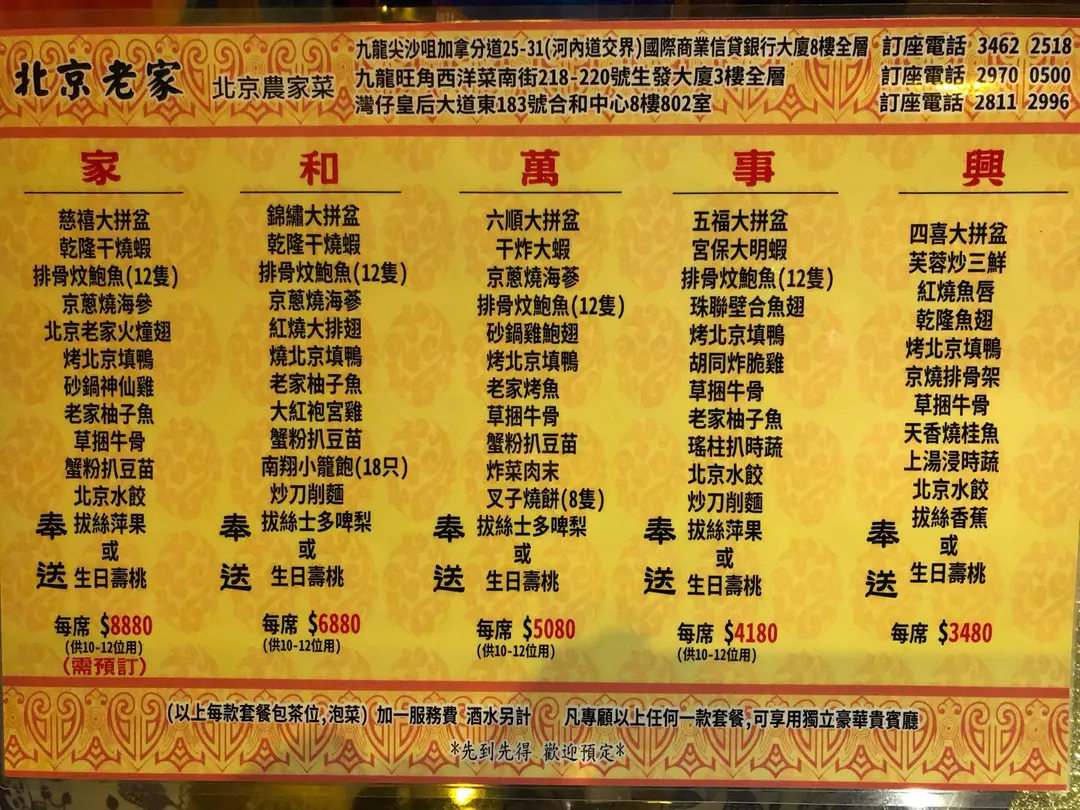 北京老家 北京農家菜
九龍尖沙咀加拿分道25-31(河內道交界)國際商業信貸銀行大廈8樓全層 訂座電話 3462 2518
九龍旺角西洋菜南街218-220號生發大廈3樓全層 訂座電話 2970 0500
灣仔皇后大道東183號合和中心8樓802室 訂座電話 2811 2996
家
慈禧大拼盆
乾隆干燒蝦
排骨炆鮑魚(12隻)
京蔥燒海參
北京老家火燑翅
烤北京填鴨
砂鍋神仙雞
老家柚子魚
草捆牛骨
蟹粉扒豆苗
北京水餃
奉送
拔絲萍果
或
生日壽桃
每席 $8880
(供10-12位用)
(需預訂)
和
錦繡大拼盆
乾隆干燒蝦
排骨炆鮑魚(12隻)
京蔥燒海蔘
紅燒大排翅
燒北京填鴨
老家柚子魚
大紅袍宮雞
蟹粉扒豆苗
南翔小籠飽(18只)
炒刀削麵
奉送
拔絲士多啤梨
或
生日壽桃
每席 $6880
(供10-12位用)
萬
六順大拼盆
干炸大蝦
京蔥燒海蔘
排骨炆鮑魚(12隻)
砂鍋雞鮑翅
烤北京填鴨
老家烤魚
草捆牛骨
蟹粉扒豆苗
炸菜肉末
叉子燒餅(8隻)
奉送
拔絲士多啤梨
或
生日壽桃
每席 $5080
(供10-12位用)
事
五福大拼盆
宮保大明蝦
排骨炆鮑魚(12隻)
珠聯壁合魚翅
烤北京填鴨
胡同炸脆雞
草捆牛骨
老家柚子魚
瑤柱扒時蔬
北京水餃
炒刀削麵
奉送
拔絲萍果
或
生日壽桃
每席 $4180
(供10-12位用)
興
四喜大拼盆
芙蓉炒三鮮
紅燒魚唇
乾隆魚翅
烤北京填鴨
京燒排骨架
草捆牛骨
天香燒桂魚
上湯浸時蔬
北京水餃
拔絲香蕉
奉送
或
生日壽桃
每席 $3480
(以上每款套餐包茶位,泡菜) 加一服務費 酒水另計 凡專顧以上任何一款套餐,可享用獨立豪華貴賓廳
*先到先得 歡迎預定*